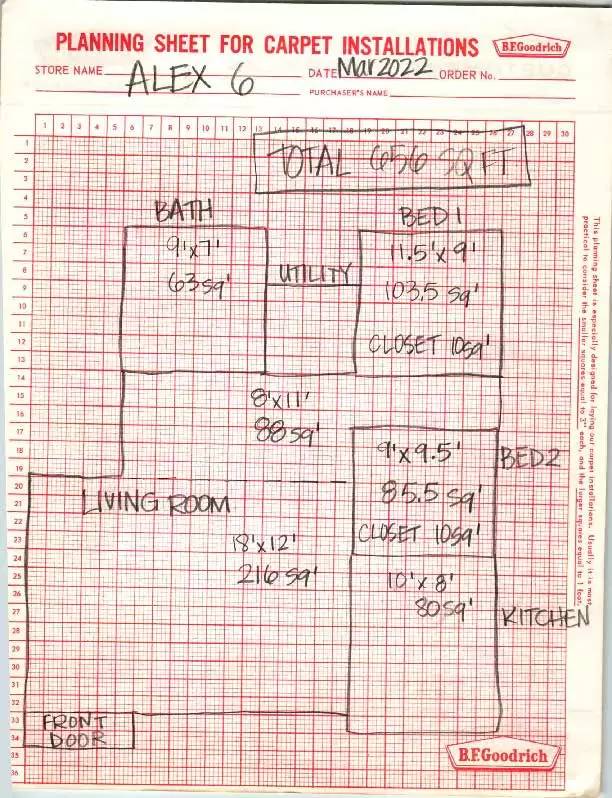 PLANNING SHEET FOR CARPET INSTALLATIONS
B.F.Goodrich
STORE NAME ALEX 6 DATE Mar 2022 ORDER No.
PURCHASER'S NAME
1 2 3 4 5 6 7 8 9 10 11 12 13 14 15 16 17 18 19 20 21 22 23 24 25 26 27 28 29 30
TOTAL 656 SQ FT
BATH
9'x7'
63 sq'
UTILITY
BED 1
11.5'x9'
103.5 sq'
CLOSET 10sq'
8'x11'
88 sq'
9'x9.5'
BED 2
85.5 sq'
CLOSET 10sq'
LIVING ROOM
18'x12'
216 sq'
10'x8'
80sq'
KITCHEN
FRONT
DOOR
1
2
3
4
5
6
7
8
9
10
11
12
13
14
15
16
17
18
19
20
21
22
23
24
25
26
27
28
29
30
31
32
33
34
35
36
This planning sheet is especially designed for laying out carpet installations. Usually it is most
practical to consider the smaller squares equal to 3" each, and the larger squares equal to 1 foot.
B.F.Goodrich